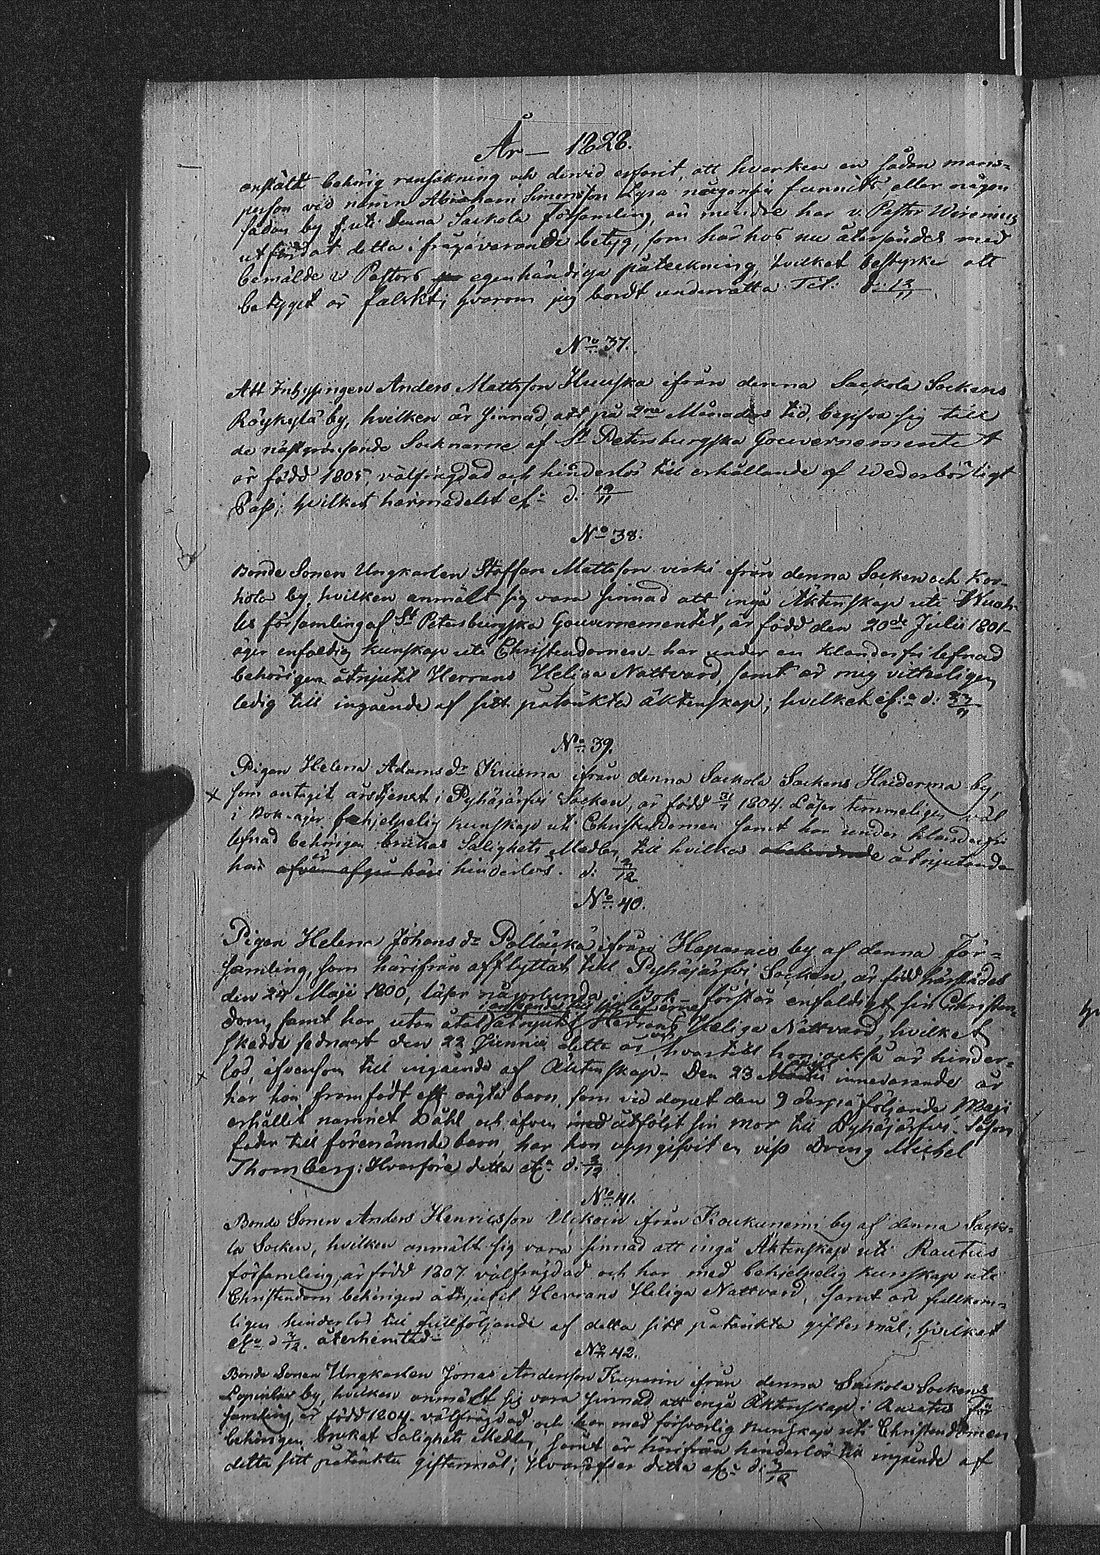 År 1828.
anstält behörig ransakning och dervid erfarit, att hvarken en sådan mans-
person vid namn Abraham Simonsson Lyra någonsin funnits eller någon
sådan by finnes uti denna Sackola Församling, än mindre har v. Pastor Wirenius
utfärdat detta ifrågavarande betyg, som härhos nu återsändes med
bemälde v Pastors egenhändiga påteckning, hvilket bestyrker att
betyget är falskt; hvarom jag bordt underrätta Tit: d: 13/11.
No 37.
Att Inhysingen Anders Mattsson Huuska ifrån denna Sackola Sockens
Röykylä by, hvilken är sinnad, att på 2ne Månaders tid, begifva sig till
de näst gränsande Socknarne af St Petersburgska Gouvernementet
är född 1805, välfrägdad och hinderlös till erhållande af Wederbörligt
Pass; hvilket härmedelst ef. d. 19/11
No 38.
Bonde Sonen Ungkarlen Staffan Mattsson viski ifrån denna Socken och Kor-
hola by, hvilken anmält sig vara sinnad att ingå Äktenskap uti
församling af St Petersburgska Gouvernementet, är född den 20de Julii 1801
äger enfaldig kunskap uti Christendomen, har under en klanderfri lefnad
behörigen åtnjutit Herrans Heliga Nattvard, samt är mig vitterligen
ledig till ingående af sitt påtänkta äktenskap; hvilket ef. d:
No 39.
Pigan Helena Adams dr Kuisma ifrån denna Sackola Sockens Haiderma by,
som antagit årstjenst i Pyhäjärfvi Socken, är född 1804. Läser temmeligen väl
i Bok, äger behjelpelig kunskap uti Christendomen samt har under klanderfri
lefnad behörigen brukat Salighets Medlen, till hvilkas åtnjutande
hon är hinderlös. d: 2/12
No 40.
Pigan Helena Johans dr Pälläikä ifrån Haparais by af denna För-
samling, som härifrån afflyttat till Pyhäjärfvi Socken, är född härstädes
den 24 Maji 1800, läser någorlunda i Bok, förstår enfaldigt sin Christen-
dom, samt har utan åtal åtnjutit Herrans Heliga Nattvard, hvilket
skedde sednast den 22 Junii detta år, hvartill hon också är hinder-
lös, äfvensom till ingående af Äktenskap. Den 23 innevarande år
har hon framfödt ett oägta barn, som vid dopet den 9 derpåföljande Maji
erhållit namnet Dahl och äfven med åtföljt sin mor till Pyhäjärfvi. Såsom
fader till förenämnde barn har hon uppgifvit en viss Dreng Michel
Thomberg; Hvarföre detta ef. d: 2/12
No 41.
Bonde Sonen Anders Henricsson Ukkoin ifrån Koukunemi by af denna Sacko-
la Socken, hvilken anmält sig vara sinnad att ingå Äktenskap uti Rautus
församling, är född 1807 välfrägdad och har med behjelpelig kunskap uti
Christendom behörigen åtnjutit Herrans Heliga Nattvard, samt är fullkom-
ligen hinderlös till fullföljande af detta sitt påtänkta giftermål; hvilket
ef. d 3/12.
No 42.
Bonde Sonen Ungkarlen Jonas Andersson Kuparin ifrån denna Sackola Sockens
by, hvilken anmält sig vara sinnad att ingå Äktenskap i Rautus För-
samling, är född 1804, välfrägdad och har med försvarlig kunskap uti Christendomen
behörigen brukat Salighets Medlen, samt är härifrån hinderlös till ingående af
detta sitt påtänkta giftermål; Hvarefter detta ef. d: 7/12